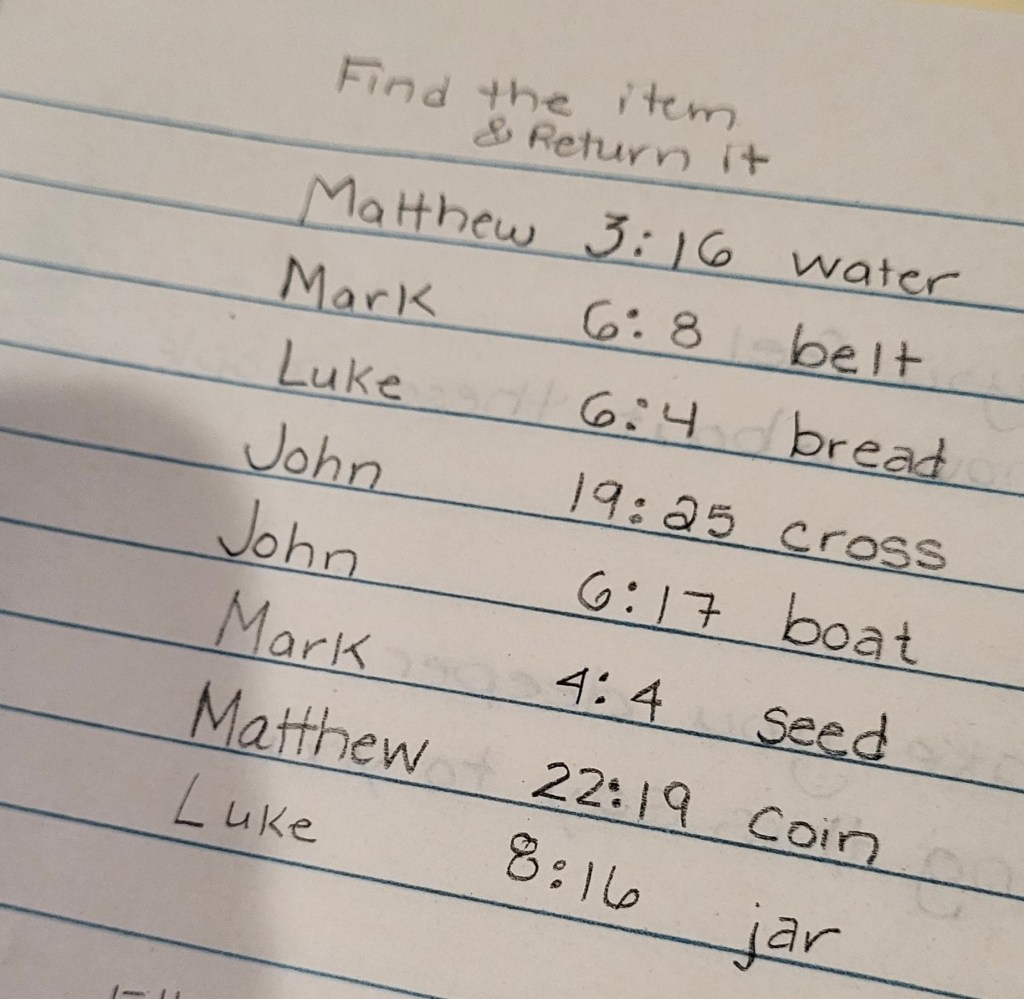 Find the item
& Return it
Matthew 3:16 water
Mark 6:8 belt
Luke 6:4 bread
John 19:25 cross
John 6:17 boat
Mark 4:4 seed
Matthew 22:19 coin
Luke 8:16 jar